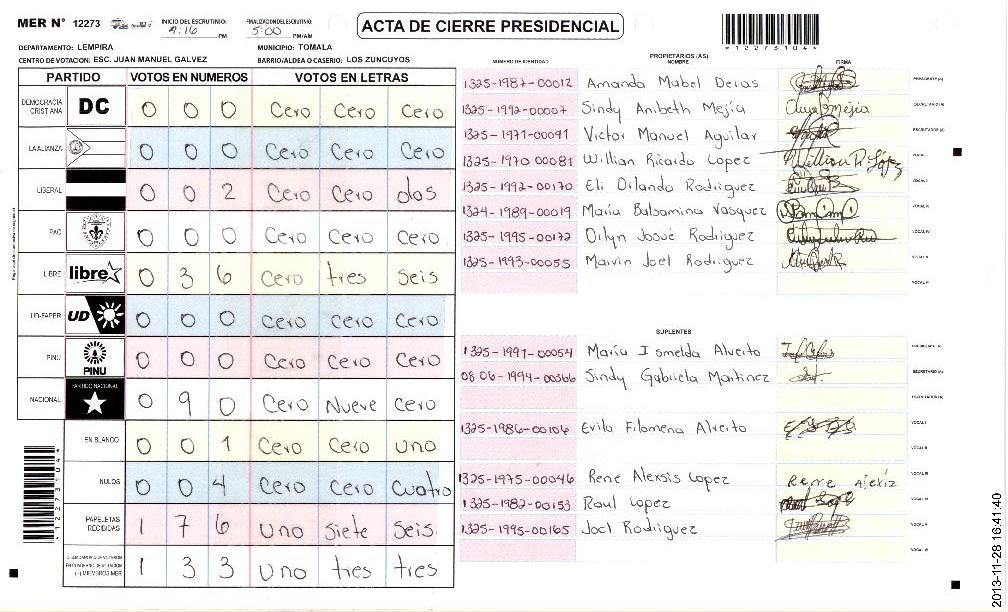 MER N° 12273
INICIO DEL ESCRUTINIO: 4:16 PM
FINALIZACION DEL ESCRUTINIO: 5:00 PM/AM
ACTA DE CIERRE PRESIDENCIAL
DEPARTAMENTO: LEMPIRA
MUNICIPIO: TOMALA
CENTRO DE VOTACION: ESC. JUAN MANUEL GALVEZ
BARRIO/ALDEA O CASERIO: LOS ZUNCUYOS
PARTIDO VOTOS EN NUMEROS VOTOS EN LETRAS
DEMOCRACIA CRISTIANA DC 0 0 0 Cero Cero Cero
LA ALIANZA 0 0 0 Cero Cero Cero
LIBERAL 0 0 2 Cero Cero dos
PAC 0 0 0 Cero Cero Cero
LIBRE libre 0 3 6 Cero tres seis
UD-FAPER UD 0 0 0 Cero Cero Cero
PINU PINU 0 0 0 Cero Cero Cero
NACIONAL PARTIDO NACIONAL 0 9 0 Cero Nueve Cero
EN BLANCO 0 0 1 Cero Cero uno
NULOS 0 0 4 Cero Cero Cuatro
PAPELETAS RECIBIDAS 1 7 6 Uno Siete Seis
1 3 3 Uno tres tres
PROPIETARIOS (AS)
NUMERO DE IDENTIDAD NOMBRE FIRMA
1325-1987-00012 Amanda Mabel Deras PRESIDENTE(A)
1325-1992-00007 Sindy Anibeth Mejía SECRETARIO(A)
1325-1971-00091 Victor Manuel Aguilar ESCRUTADOR(A)
1325-1970 00081 Willian Ricardo Lopez William R. López VOCAL I
1325-1992-00170 Eli Orlando Rodriguez
1324-1989-00019 María Balsamina Vasquez
1325-1995-00172 Oilyn Josué Rodriguez
1325-1993-00055 Marvin Joel Rodriguez
SUPLENTES
1325-1991-00054 María Ismelda Alverto PRESIDENTE(A)
0806-1994-00366 Sindy Gabriela Martinez SECRETARIO(A)
ESCRUTADOR(A)
1325-1986-00106 Evila Filomena Alverto VOCAL I
1325-1975-00046 Rene Alexsis Lopez Rene Alexiz
1325-1982-00153 Raul Lopez
1325-1995-00165 Joel Rodriguez
41227310 44
2013-11-28 16:41:40